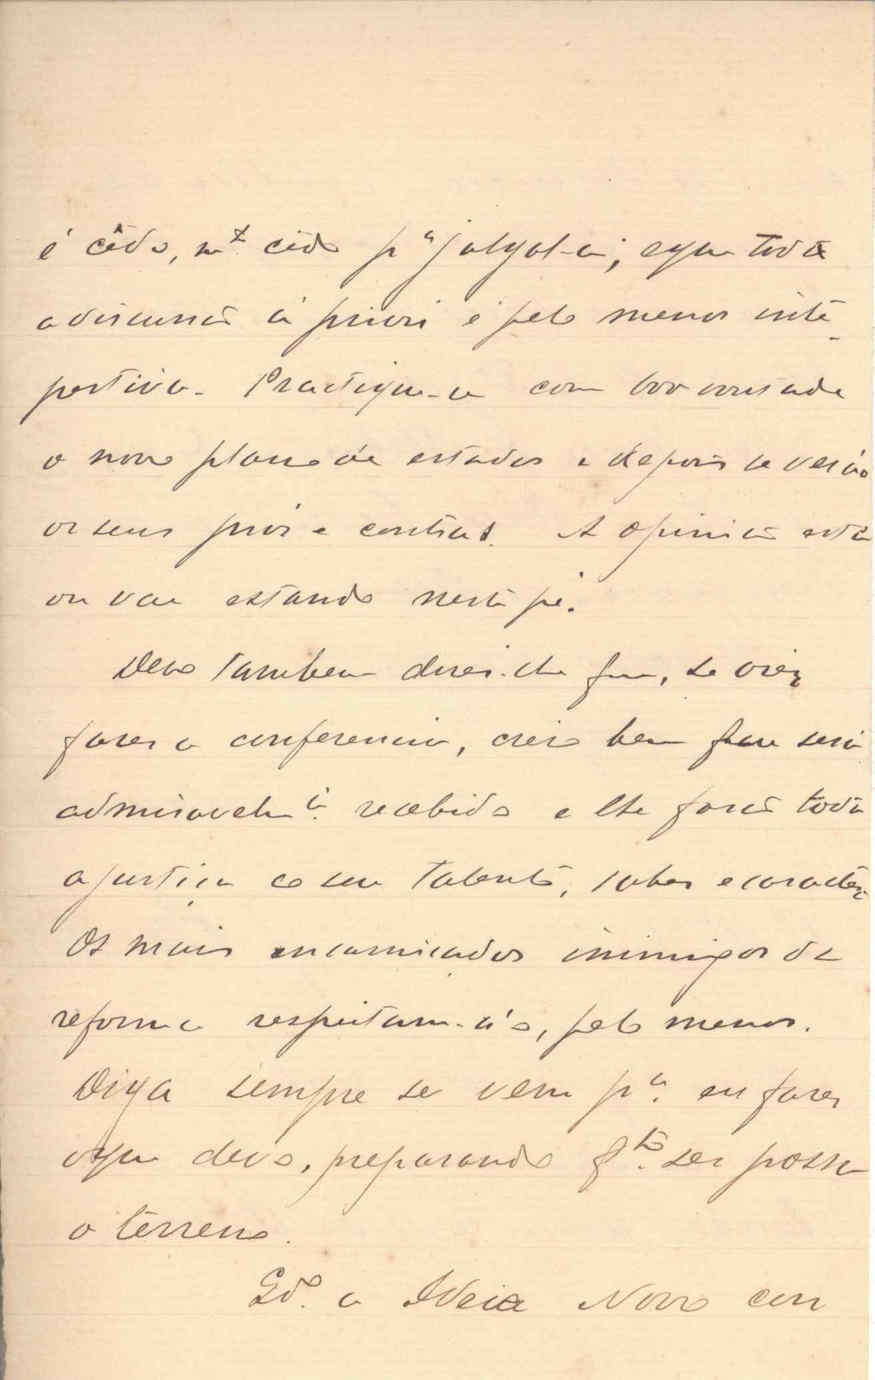 é cêdo, mt.º cêdo p.ª julgal-a; e que toda
a discussão á priori é pelo menos intẽ-
pestiva. Practique-se com boa vontade
o novo plano de estudos e depois se verão
os seus prós e contras. A opinião está
ou vae estando neste pé.
Devo tambem dizer-lhe que, se vier
fazer a conferencia, creio bem que será
admiravelm.te recebido e lhe farão toda
a justiça ao seu talento, saber e caracter.
Os mais encarniçados inimigos da
reforma respeitam-n'o, pelo menos.
Diga sempre se vem p.ª eu fazer
o que devo, preparando q.to ser possa
o terreno.
Qd.º a Ideia Nova con